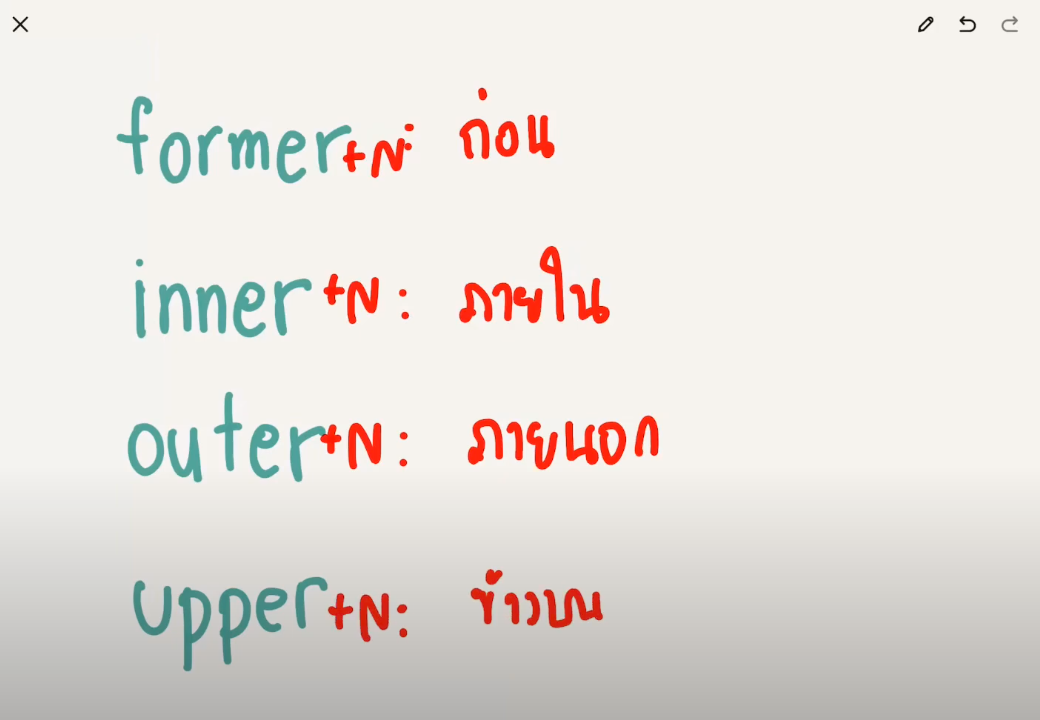 former+N: ก่อน
inner+N: ภายใน
outer+N: ภายนอก
upper+N: ข้างบน